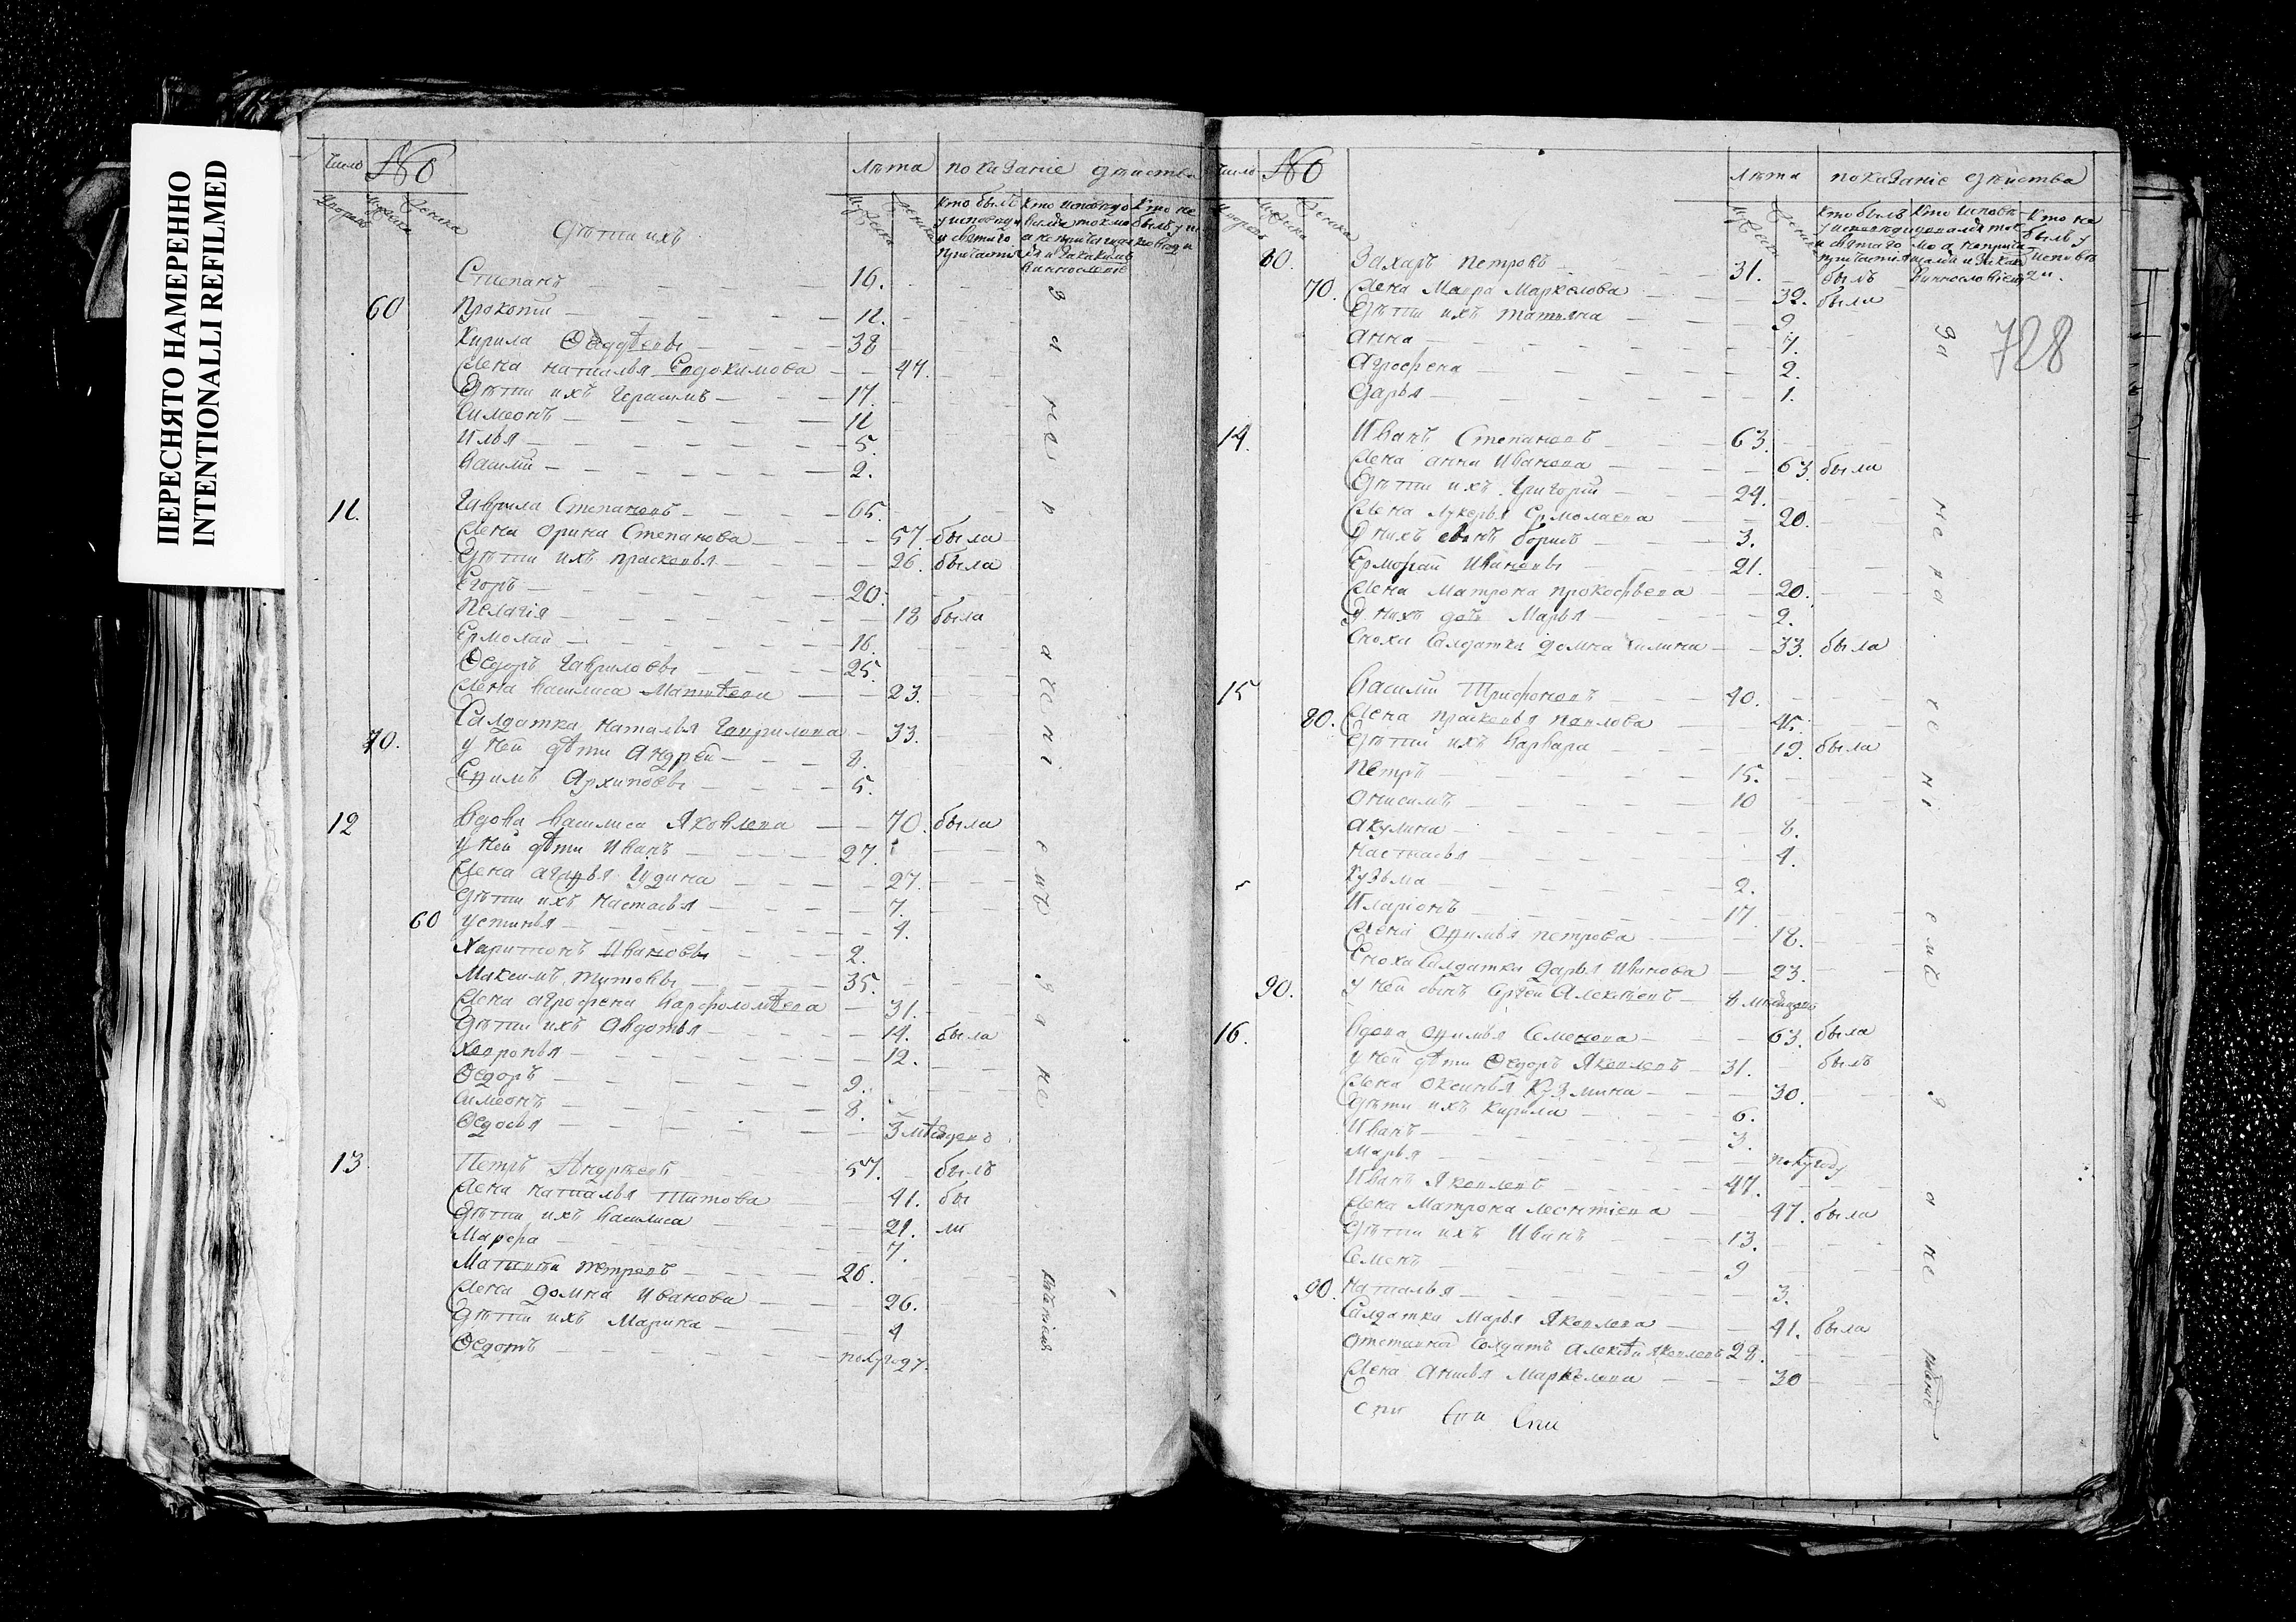 ПЕРЕСНЯТО НАМЕРЕННО
INTENTIONALLI REFILMED
Число № Лѣта показанїе дѣиства
Дѣти ихъ
Степанъ 16.
60 Прокопїи 12.
Кирила Фаддѣевъ 38
Жена наталья Евдокимова 44.
Дѣти ихъ Герасимъ 17.
Симеонъ 12
Илья 5.
Василїи 2.
11. Гаврила Степановъ 65.
Жена орина Степанова 57. была
Дѣти ихъ прасковья 26. была
Егоръ 20.
Пелагїя 18 была
Ермолаи 16.
Ѳедоръ Гавриловъ 25.
Жена василиса Матвѣева 23.
Салдатка наталья Гаврилова 33.
70. у неи дѣти Андреи 8.
Ефимъ Архиповъ 5.
12 Вдова василиса Яковлева 70. была
у неи дѣти Иванъ 27.
Жена агафья Іудина 27.
Дѣти ихъ настасья 7.
60 устинья 4.
Харитонъ Ивановъ 2.
Максимъ титовъ 35.
Жена агрофена варфоломѣева 31.
Дѣти ихъ Авдотья 14. была
Хавронья 12.
Ѳедоръ 9.
Симеонъ 8.
Ѳедосья 3
13 Петръ Андрѣевъ 57. былъ
Жена наталья титова 41. бы
Дѣти ихъ василиса 21. ли
Марфа 7.
Матвѣи петровъ 26.
Жена домна иванова 26.
Дѣти ихъ Марина 4
Ѳедотъ полугоду.
за не раченїемъ
за не
Число № Лѣта показанїе дѣиства
60. Захаръ петровъ 31. былъ
70. Жена Мавра Маркелова 32. была
728
Дѣти ихъ татьяна 9
анна 7.
Агрофена 2.
Дарья 1.
14. Иванъ Степановъ 63.
Жена анна Иванова 63. была
Дѣти ихъ Григорїи 24.
Жена лукерья Ермолаева 20.
У нихъ сынъ борисъ 3.
Ермолаи Ивановъ 21.
Жена матрона прокофьева 20.
У нихъ дочь Марья 2.
Сноха Салдатка домна 33. была
15 Василїи Трифоновъ 40.
80. Жена прасковья павлова 45.
Дѣти ихъ варвара 19. была
Петръ 15.
онисимъ 10
акулина 8.
настасья 4.
Кузьма 2.
Иларїонъ 17.
Жена Ефимья петрова 18.
Сноха Салдатка дарья Иванова 23.
90. у неи сынъ Сергеи Алексѣевъ 8
16. Вдова Ефимья Семенова 63. была
у неи дѣти Ѳедоръ Яковлевъ 31. былъ
Жена оксинья Кузмина 30.
Дѣти ихъ Кирила 6.
Иванъ 3.
Марья полугоду
Иванъ Яковлевъ 47.
Жена Матрона леонтїева 47. была
Дѣти ихъ Иванъ 13.
Семенъ 9
90. наталья 3.
Салдатка Марья Яковлева 41. была
отставной Солдатъ алексѣи яковлевъ 28.
Жена Анисья Маркелова 30
за не раченїемъ
за не